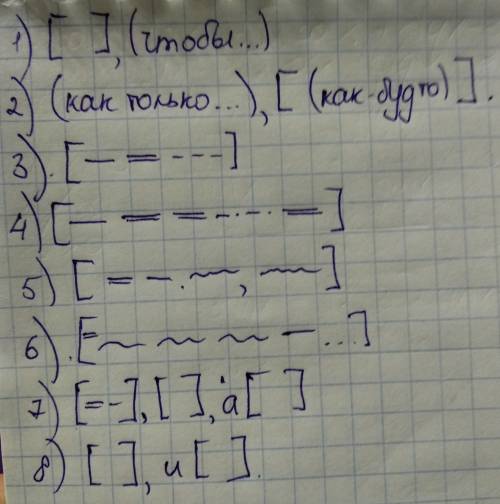 1) [ ], (чтобы...)
2) (как только...), [ (как-будто) ].
3) . [— = ---]
4) [— = = -.-.- =]
5) [= – . ~~~, ~~~]
6) . [= ~ ~ ~ — ...]
7) [= -], [ ], а [ ]
8) [ ], и [ ].